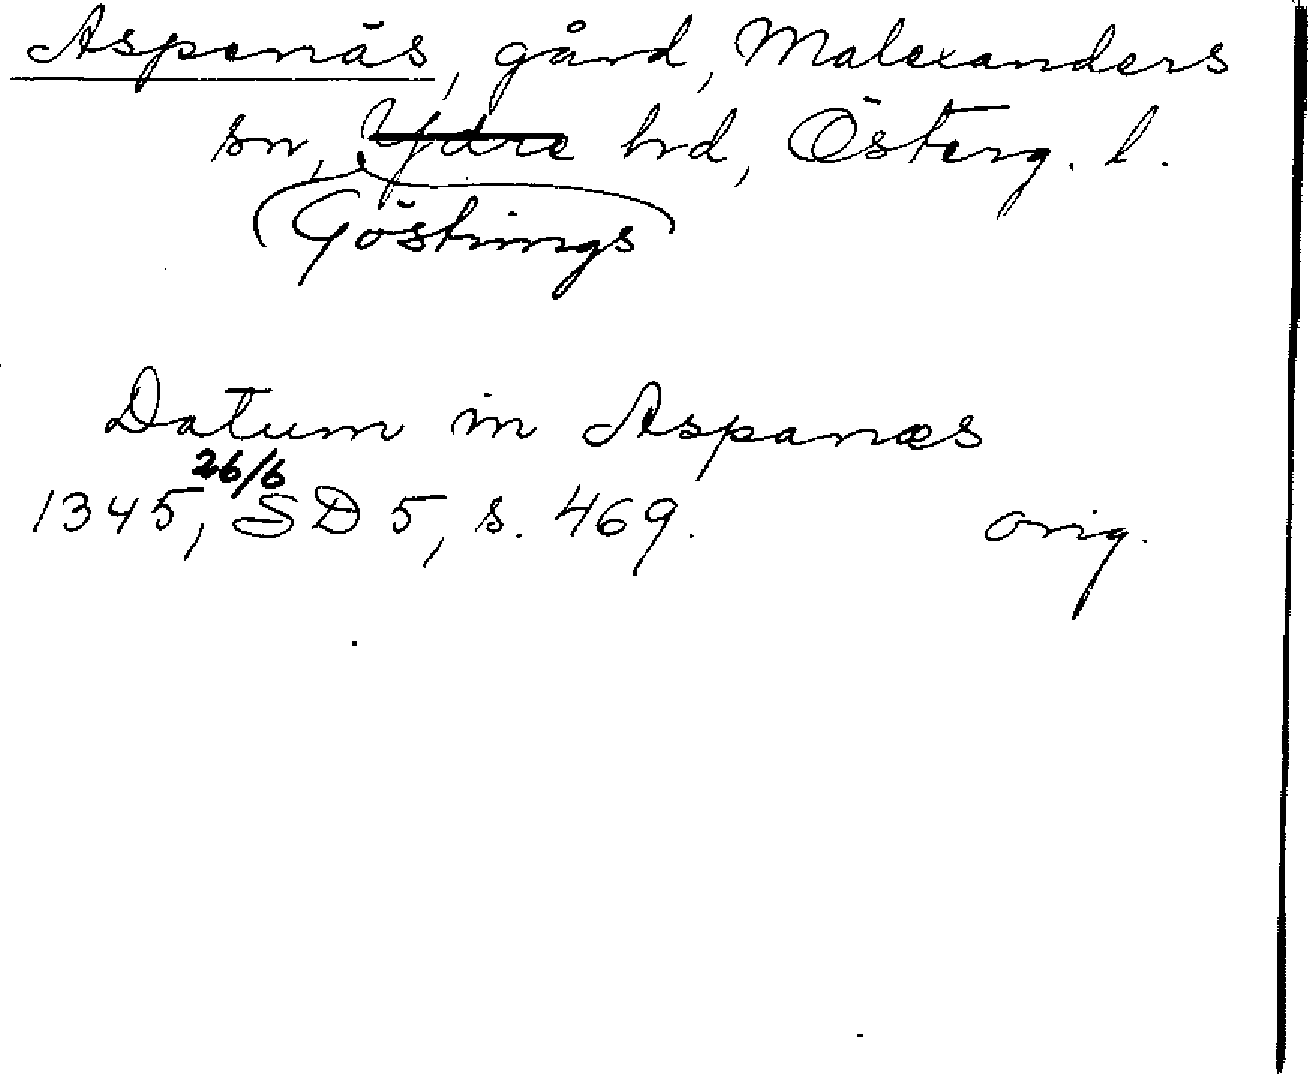 Aspenäs, gård, Malexanders
sn, Ydre hd, Österg. l.
Göstrings
Datum in Aspanæs
26/6
1345, SD 5, s. 469. orig.